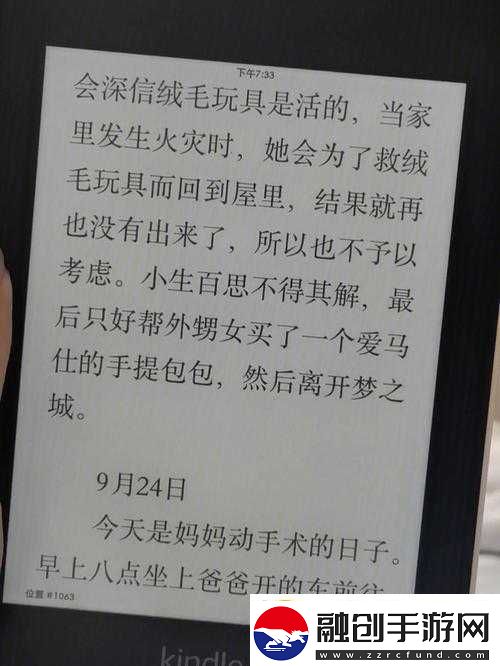 下午7:33
会深信绒毛玩具是活的，当家
里发生火灾时，她会为了救绒
毛玩具而回到屋里，结果就再
也没有出来了，所以也不予以
考虑。小生百思不得其解，最
后只好帮外甥女买了一个爱马
仕的手提包包，然后离开梦之
城。
9月24日
今天是妈妈动手术的日子。
早上八点坐上爸爸开的车前往
位置 #1063
kindle
融创手游网
www.zzrcfund.com